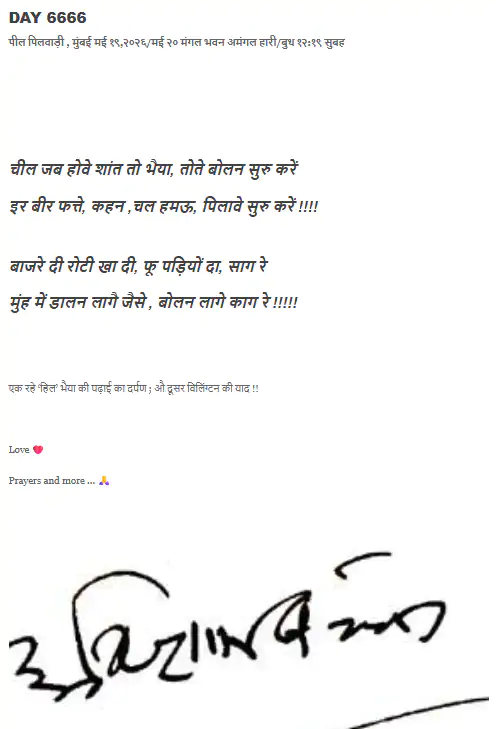 DAY 6666
पील पिलवाड़ी , मुंबई मई १९,२०२६/मई २० मंगल भवन अमंगल हारी/बुध १२:१९ सुबह
चील जब होवे शांत तो भैया, तोते बोलन सुरु करें
इर बीर फत्ते, कहन ,चल हमऊ, पिलावे सुरु करें !!!!
बाजरे दी रोटी खा दी, फू पड़ियों दा, साग रे
मुंह में डालन लागै जैसे , बोलन लागे काग रे !!!!!
एक रहे 'हिल' भैया की पढ़ाई का दर्पण ; औ दूसर विलिंग्टन की याद !!
Love ❤️
Prayers and more ... 🙏